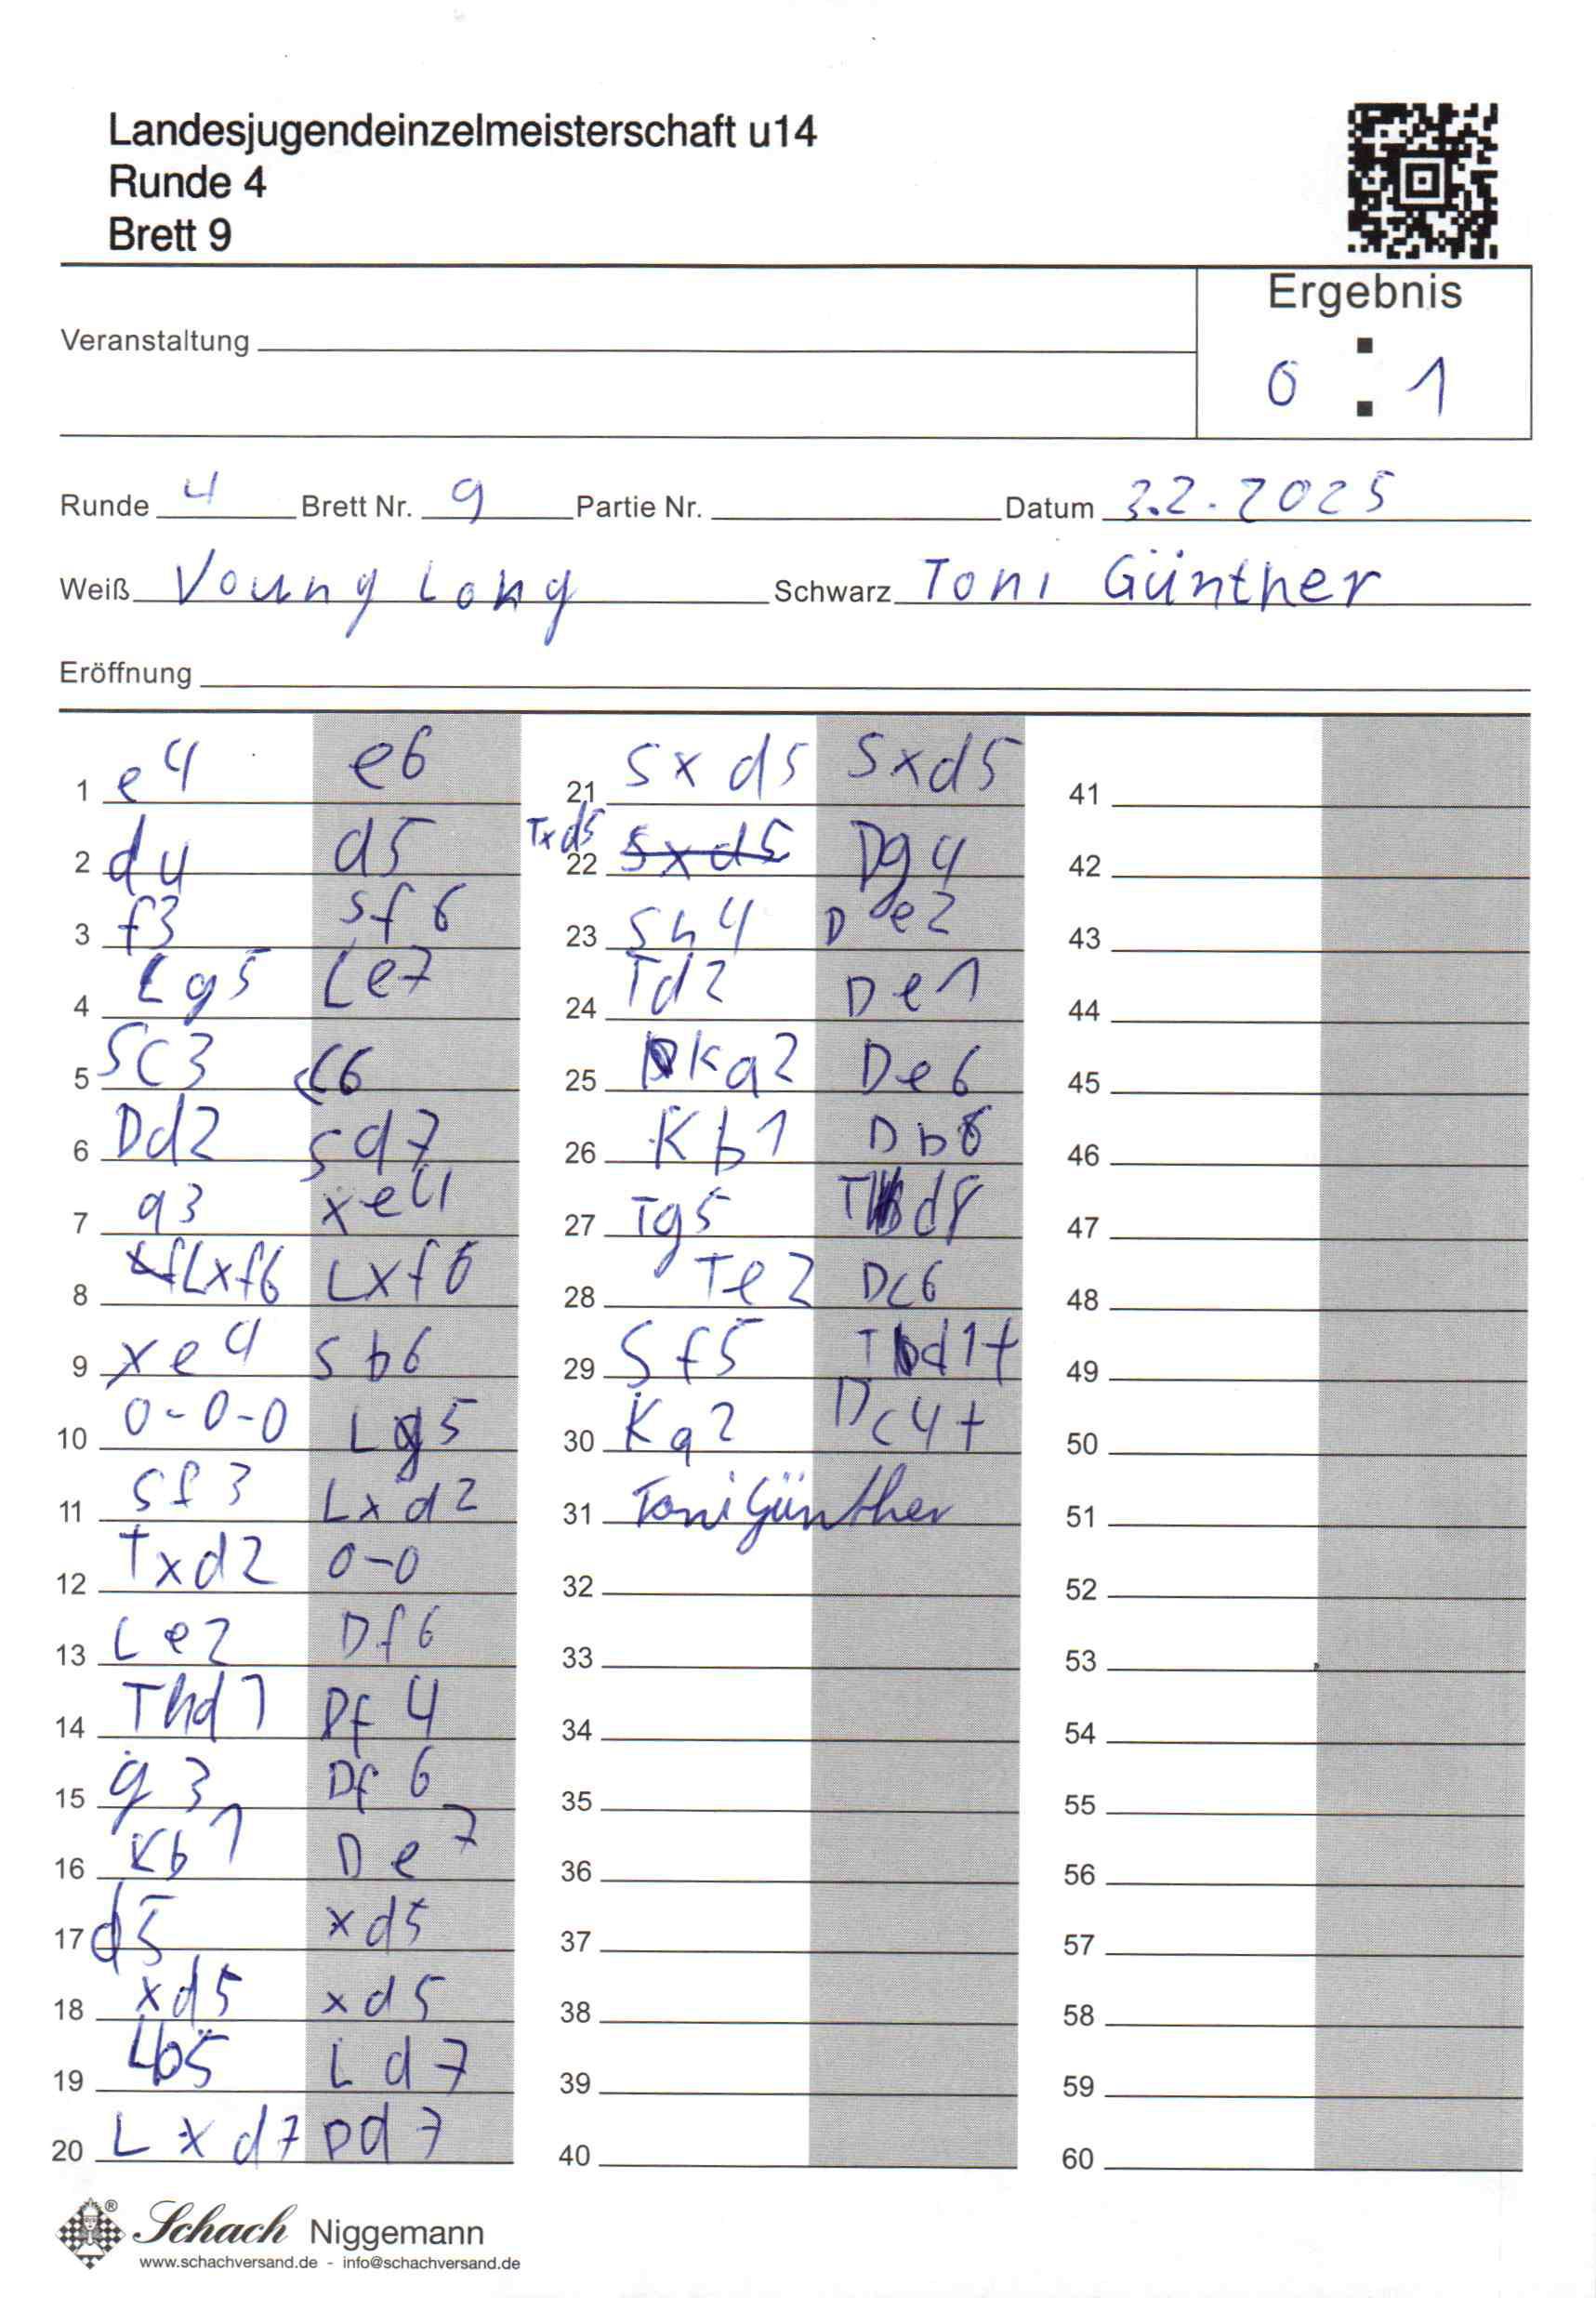 Landesjugendeinzelmeisterschaft u14
Runde 4
Brett 9
Ergebnis
Veranstaltung
0 : 1
Runde 4 Brett Nr. 9 Partie Nr. Datum 2.2.2025
Weiß Voung Long Schwarz Toni Günther
Eröffnung
1 e4 e6
2 d4 d5
3 f3 Sf6
4 Lg5 Le7
5 Sc3 c6
6 Dd2 Sd7
7 a3 xe4
8 Lxf6 Lxf6
9 xe4 Sb6
10 0-0-0 Lg5
11 Sf3 Lxd2
12 Txd2 0-0
13 Le2 Df6
14 Thd1 Df4
15 g3 Df6
16 Kb1 De7
17 d5 xd5
18 xd5 xd5
19 Lb5 Ld7
20 Lxd7 Dd7
21 Sxd5 Sxd5
22 Txd5 Sxd5 Dg4
23 Sh4 De2
24 Td2 De1
25 Ka2 De6
26 Kb1 Db6
27 Tg5 Td8
28 Te2 Dc6
29 Sf5 Td1+
30 Ka2 Dc4+
31 Toni Günther
32
33
34
35
36
37
38
39
40
41
42
43
44
45
46
47
48
49
50
51
52
53
54
55
56
57
58
59
60
Schach Niggemann
www.schachversand.de - info@schachversand.de